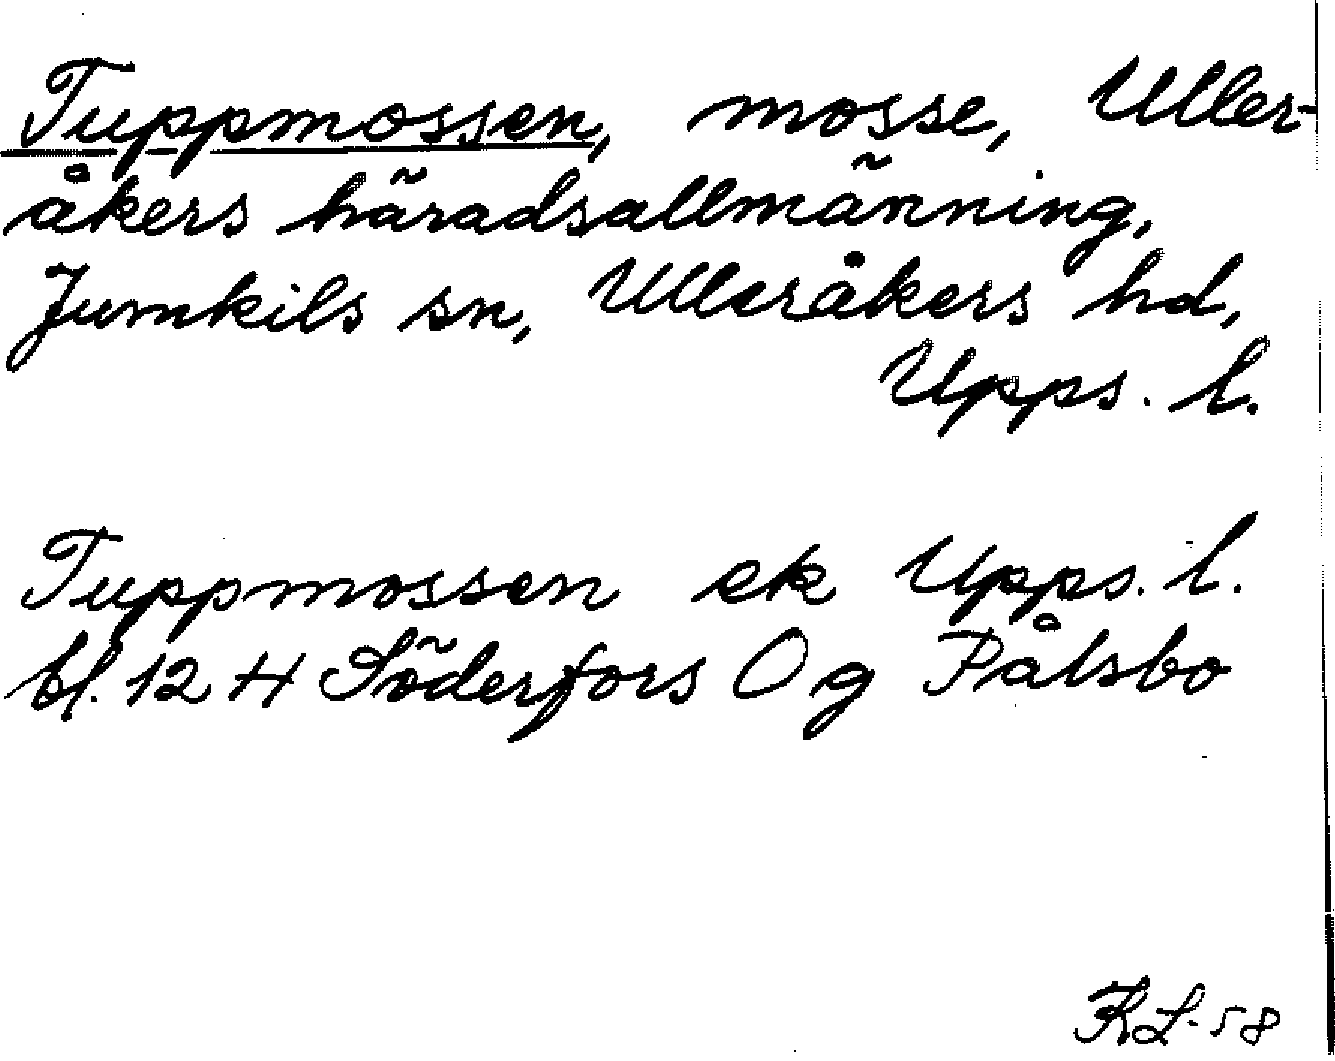 Tuppmossen, mosse, Uller-
åkers häradsallmänning,
Jumkils sn, Ulleråkers hd,
Upps. l.
Tuppmossen ek Upps. l.
bl. 12 H Söderfors Og Pålsbo
KL-58